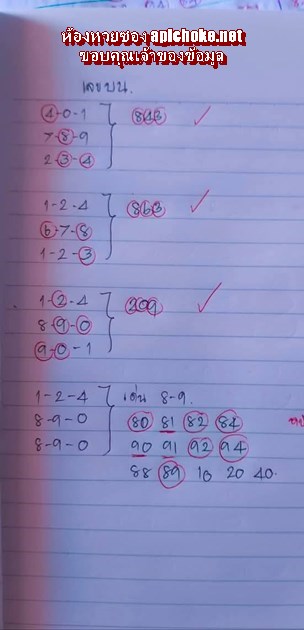 ห้องหวยซอง apichoke.net
ขอบคุณเจ้าของข้อมูล
เลขบน.
4-0-1
7-8-9
843
2-3-4
1-2-4
6-7-8
863
1-2-3
1-2-4
8-9-0
209
9-0-1
1-2-4 เด่น 8-9.
8-9-0 80 81 82 84
8-9-0 90 91 92 94
88 89 10 20 40.